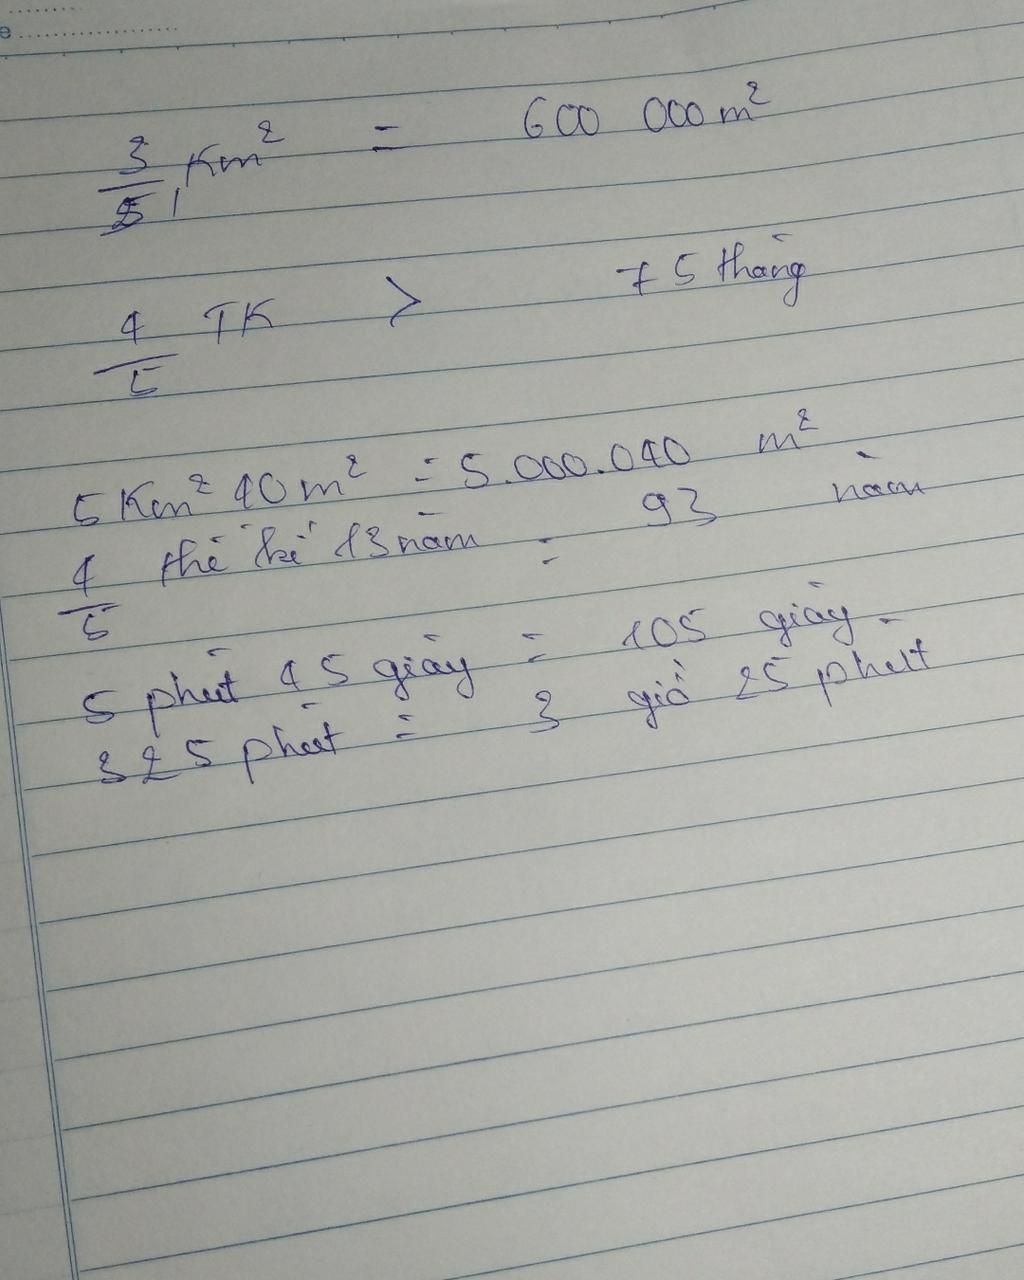 e
3/5 Km² = 600 000 m²
4/5 TK > 75 tháng
5 Km² 40 m² = 5.000.040 m²
4/5 thế kỉ 13 năm = 93 năm
5 phút 45 giây = 105 giây
325 phút = 3 giờ 25 phút